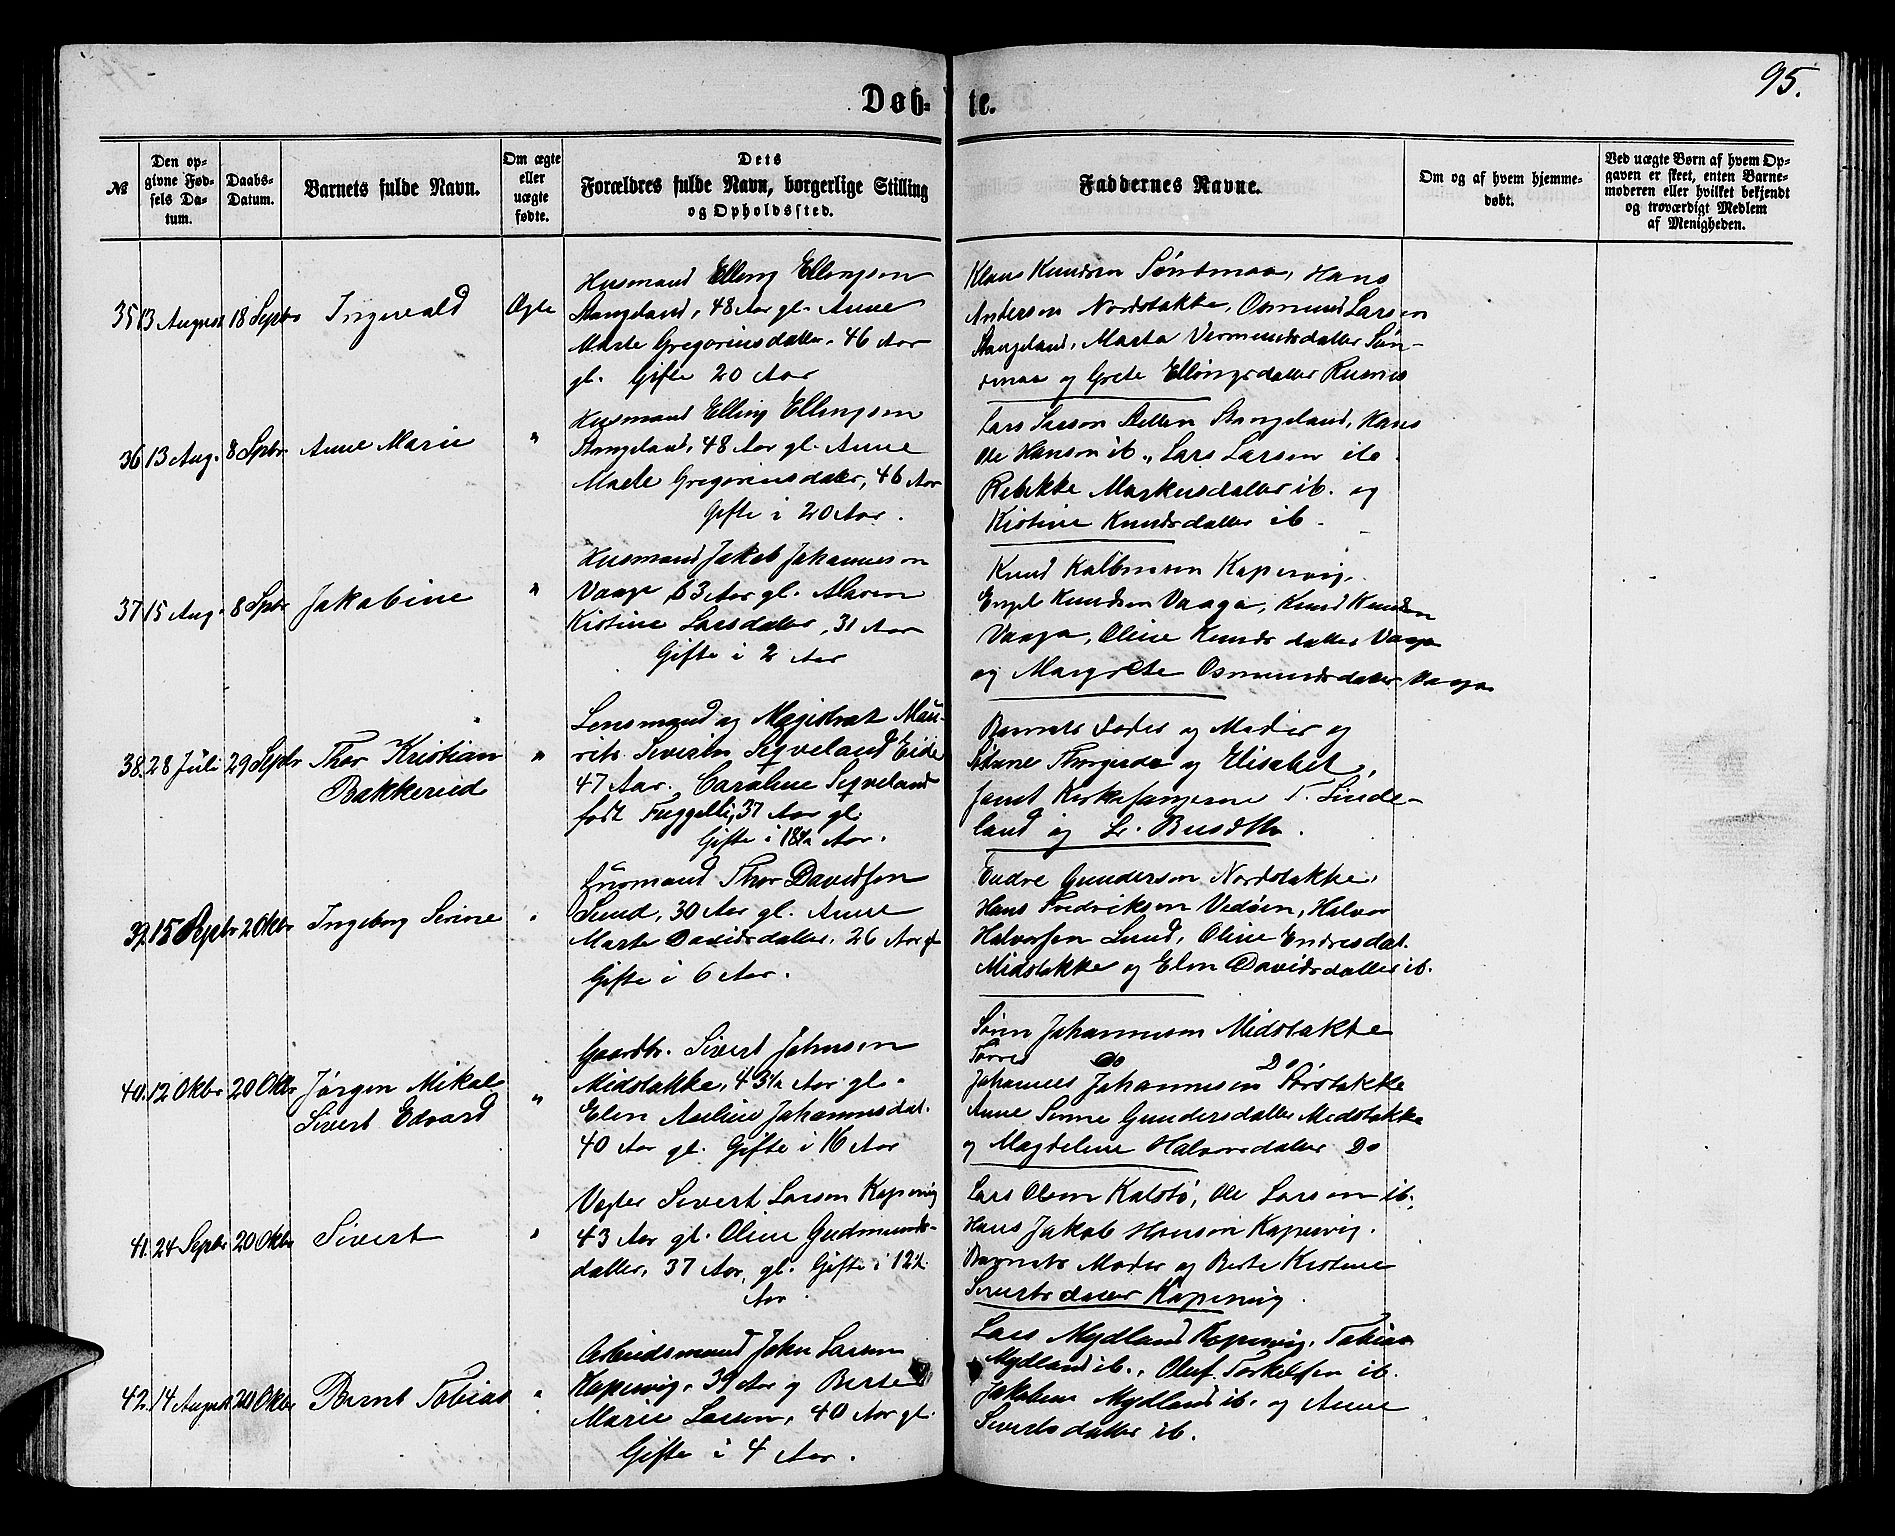 95.
Døb- te.
№
Den opgivne Fødsels Datum.
Daabs-Datum.
Barnets fulde Navn.
Om ægte eller uægte fødte.
Dets Forældres fulde Navn, borgerlige Stilling og Opholdssted.
Faddernes Navne.
Om og af hvem hjemmedøbt.
Ved uægte Børn af hvem Opgaven er skeet, enten Barnemoderen eller hvilket bekjendt og troværdigt Medlem af Menigheden.
35 13 August 18 Septbr Ingevald Ægte
Husmand Elling Ellingsen
Stangeland, 48 Aar gl. Anne
Marte Gregoriusdatter, 46 Aar
gl. Gifte 20 Aar
Klaus Knudsen Søndmaa, Hans
Andersen Nordstakke, Osmund Larsen
Stangeland, Marta Vermundsdatter Søn-
dmaa og Grete Ellingsdatter
36 13 Aug. 8 Sptbr Anne Marie "
Husmand Elling Ellingsen
Stangeland, 48 Aar gl. Anne
Marte Gregoriusdatter, 46 Aar
Gifte i 20 Aar.
Lars Larsen Stangeland, Hans
Ole Hansen ib., Lars Larsen ib.
Rebekke Markusdatter ib. og
Kistine Knudsdatter ib.
37 15 Aug. 8 Sptbr Jakobine "
Husmand Jakob Johannesen
Vaage, 63 Aar gl. Maren
Kistine Larsdatter, 31 Aar
Gifte i 2 Aar
Knud Kopervig,
Engel Knudsen Vaaga, Knud Knudsen
Vaaga, Oline Knudsdatter Vaage
og Margrete Osmundsdatter Vaage
38. 28 Juli 29 Septbr Thor Kristian "
Bakkeried
Lensmand og Magistrat Mau-
rits Severin Seqveland Eide
47 Aar. Caroline Seqveland
født Fuggelli, 37 Aar gl.
Gifte i 18½ Aar.
Barnets Fader og Moder og
Thorgerda og Elisabet,
samt Kirkesangerne T. Linde-
land og
39. 15 Septbr 2 Oktbr Ingeborg Serine "
Huusmand Thor Davidsen
Lund, 30 Aar gl. Anne
Marte Davidsdatter, 26 Aar gl
Gifte i 6 Aar.
Endre Gundersen Nordstakke,
Hans Fredriksen Vedøen, Halvor
Halvorsen Lund, Oline Endresdat.
Midstakke og Elen Davidsdatter ib.
40. 12 Oktbr 20 Oktbr Jørgen Mikal "
Sivert Edvard
Gaardbr. Sivert Johnsen
Midstakke, 43½ Aar gl.
Elen Aseline Johannesdat.
40 Aar gl. Gifte i 16 Aar
Søren Johannesen Midstakke
Torres Do Do
Johannes Johannesen Sørstakke
Anne Serine Gundersdatter Medstakke
og Magdelene Halvorsdatter Do
41. 24 Septbr 20 Oktbr Sivert "
Vegter Sivert Larsen Kopervig
43 Aar gl. Oline Gudmunds-
datter, 37 Aar, gl. Gifte i 12½
Aar.
Lars Olsen Kalstø, Ole Larsen ib.
Hans Jakob Hansen Kopervig.
Barnets Moder og Berte Kistine
Sivertsdatter Kopervig.
42. 14 August 20 Oktbr Bernt Tobias "
Arbeidsmand John Larsen
Kopervig, 39 Aar og Berte
Marie Larsen, 40 Aar gl.
Gifte i 4 Aar.
Lars Mydland Kopervig, Tobias
Mydland ib., Oluf Torkelsen ib.
Jakobine Mydland ib. og Anne
Sivertsdatter ib.